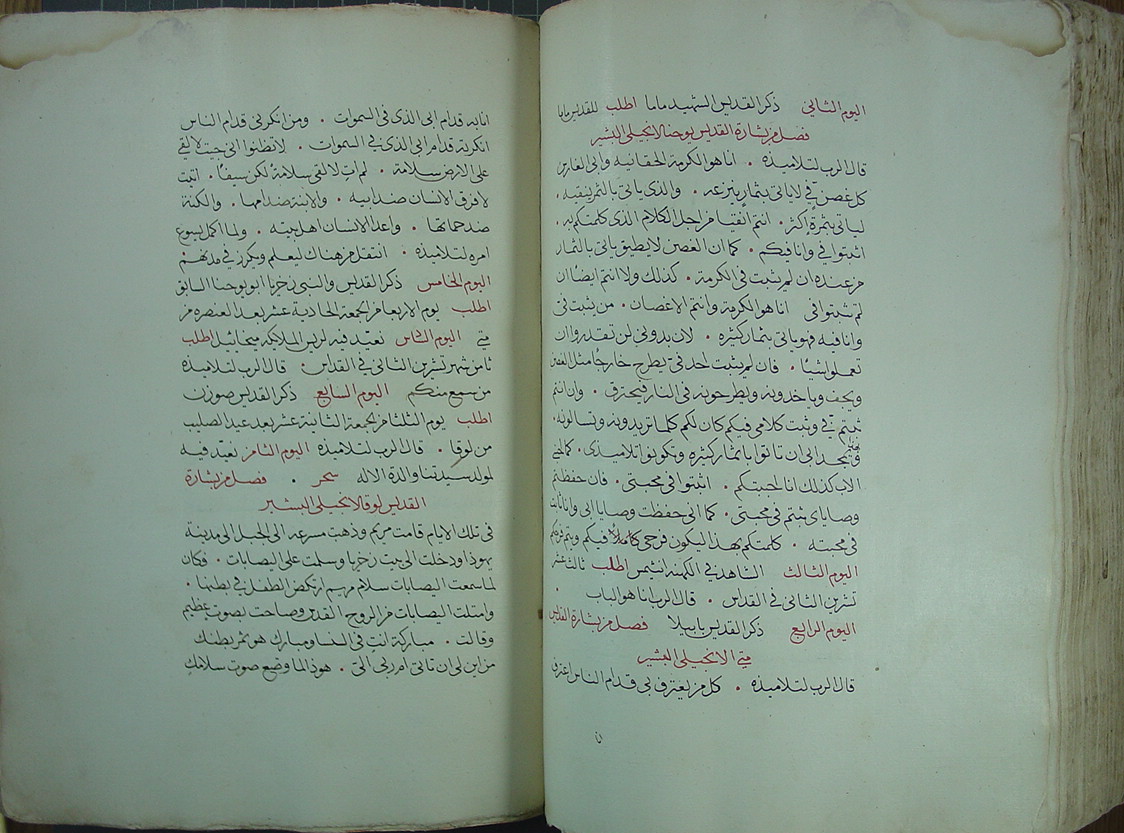 اليوم الثاني ذكر القديس الشهيد ماما اطلب للقديس ماما
فصل من بشارة القديس يوحنا الانجيلي البشير
قال الرب لتلاميذه . انا هو الكرمة الحقانيه وابي الغارس
كل غصن في لا ياتي بثمار ينزعه . والذي ياتي بالثمر ينقيه .
لياتي بثمرة اكثر . انتم انقيا من اجل الكلام الذي كلمتكم به .
اثبتوا في وانا فيكم . كما ان الغصن لا يطيق ياتي بالثمار
من عنده ان لم يثبت في الكرمة . كذلك ولا انتم ايضا ان
لم تثبتوا في انا هو الكرمة وانتم الاغصان . من يثبت في
وانا فيه فهو ياتي بثمار كثيره . لان بدوني لن تقدروا ان
تعملوا شيئا . فان لم يثبت احد في يطرح خارجا مثل الغصن
ويجف وياخدونه ويطرحونه في النار فيحترق . وان انتم
ثبتم في وثبت كلامي فيكم كان لكم كلما تريدونه وتسالونه .
ابي ان تاتوا باثمار كثيره وتكونوا تلاميذي . كما احبني
الاب كذلك انا احببتكم . اثبتوا في محبتي . فان حفظتم
وصاياي ثبتم في محبتي . كما اني حفظت وصايا ابي وانا ثابت
في محبته . كلمتكم بهذا ليكون فرحي كاملا فيكم ويتم فرحكم
اليوم الثالث الشاهد في الكهنة انثيمس اطلب ثالث عشر
تشرين الثاني في القداس . قال الرب انا هو الباب .
اليوم الرابع ذكر القديس بابيلا فصل من بشارة القديس
متي الانجيلي البشير
قال الرب لتلاميذه . كل من يعترف بي قدام الناس اعترف
انا به قدام ابي الذي في السموات . ومن انكرني قدام الناس
انكرته قدام ابي الذي في السموات . لا تظنوا اني جيت لالقي
على الارض سلامة . لم ات لالقي سلامة لكن سيفا . اتيت
لافرق الانسان ضد ابيه . والابنة ضد امها . والكنة
ضد حماتها . واعدا الانسان اهل بيته . ولما اكمل ليسوع
امره لتلاميذه . انتقل من هناك ليعلم ويكرز في مدنهم .
اليوم الخامس ذكر القديس والنبي زخريا ابو يوحنا السابق
اطلب يوم الاربعا من الجمعة الحادية عشر بعد العنصره من
متي اليوم السادس نعيد فيه لريس الملايكة ميخائيل اطلب
ثامن شهر تشرين الثاني في القداس . قال الرب لتلاميذه
من سمع منكم اليوم السابع ذكر القديس صوزن
اطلب يوم الثلثا من الجمعة الثانية عشر بعد عيد الصليب
من لوقا . قال الرب لتلاميذه اليوم الثامن نعيد فيه
لمولد سيدتنا والدة الاله سحر . فصل من بشارة
القديس لوقا الانجيلي البشير
في تلك الايام قامت مريم وذهبت مسرعه الى الجبل الى مدينة
يهوذا ودخلت الى بيت زخريا وسلمت على اليصابات . فكان
لما سمعت اليصابات سلام مريم ارتكض الطفل في بطنها .
وامتلت اليصابات من الروح القدس وصاحت بصوت عظيم
وقالت . مباركة انت في النسا ومبارك هو ثمر بطنك
من اين لي ان تاتي ام ربي الي . هوذا لما وقع صوت سلامك